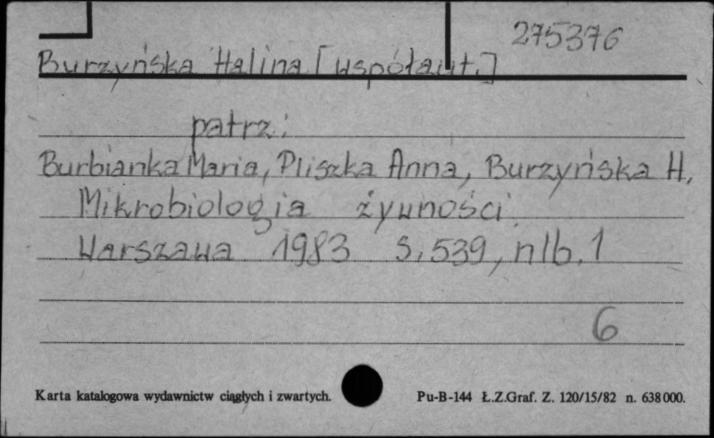 275376
Burzyńska Halina [współaut.]
patrz:
Burbianka Maria, Pliszka Anna, Burzyńska H.
Mikrobiologia żywności.
Warszawa 1983 s. 539, nlb. 1
6
Karta katalogowa wydawnictw ciągłych i zwartych. Pu-B-144 Ł.Z.Graf. Z. 120/15/82 n. 638000.